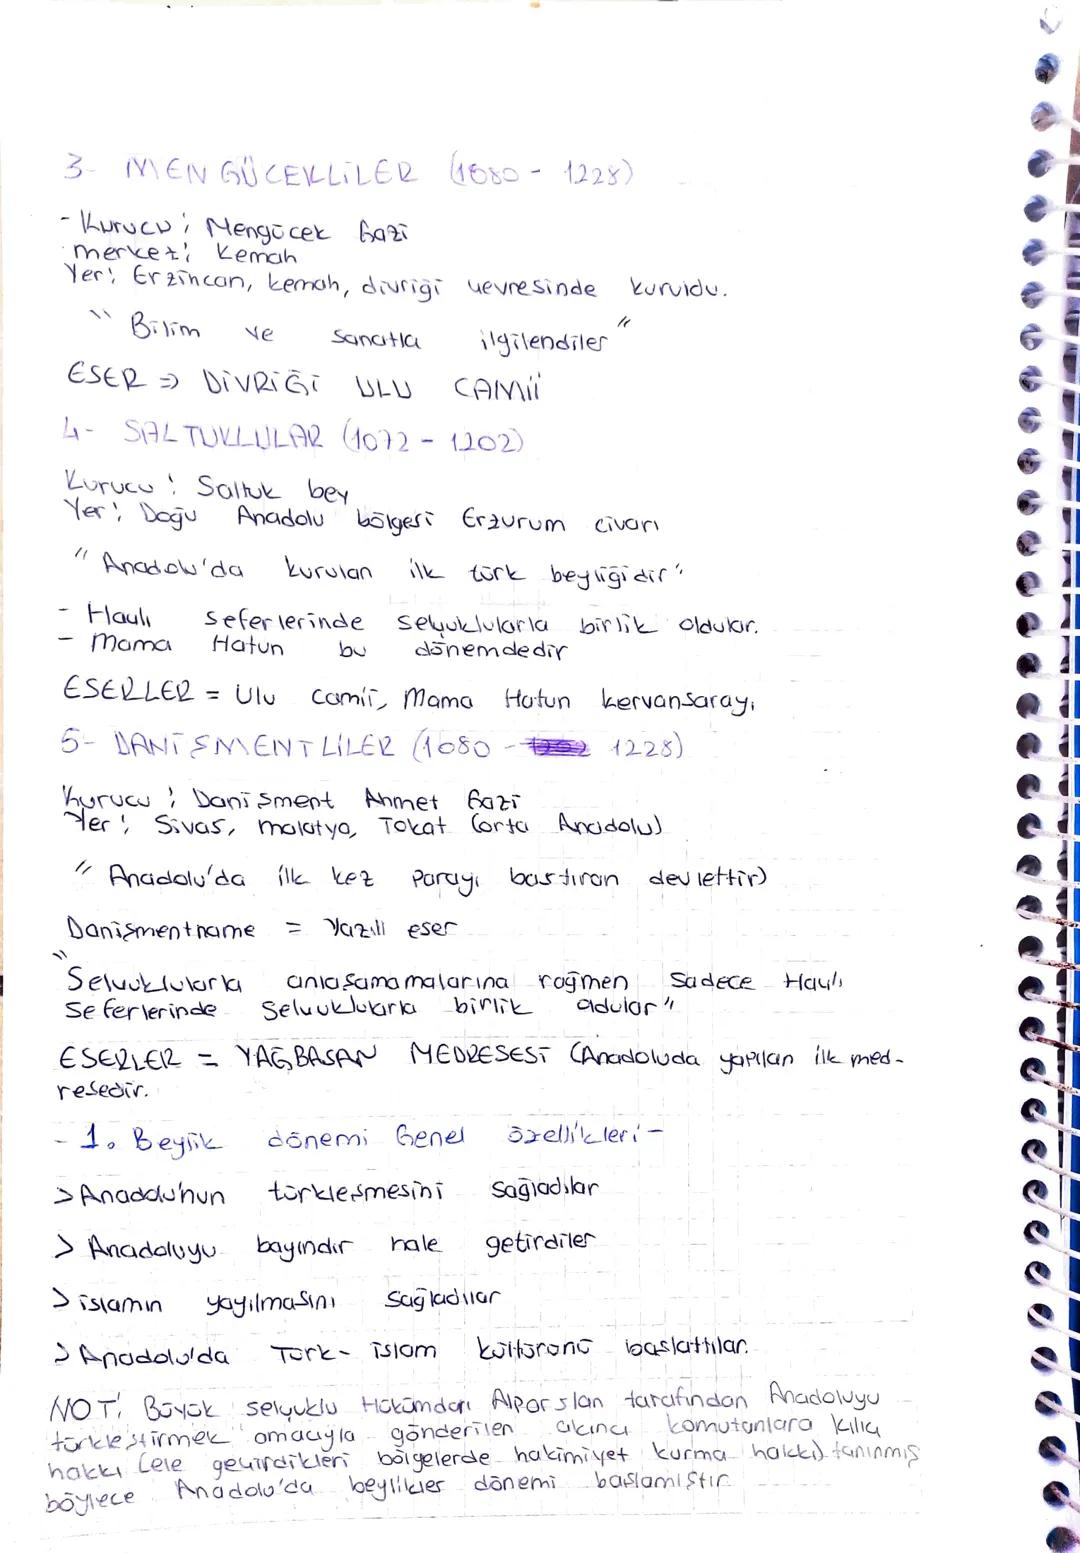 3- MENGÜCEKLİLER (1080 - 1228)
- Kurucu: Mengücek Gazi
merkez: Kemah
Yer: Erzincan, kemah, divriği çevresinde kuruldu.
"Bilim ve sanatla ilgilendiler"
ESER => DİVRİĞİ ULU CAMİİ
4- SALTUKLULAR (1072 - 1202)
Kurucu: Saltuk bey
Yer: Doğu Anadolu bölgesi Erzurum civarı
"Anadolu'da kurulan ilk türk beyliğidir"
- Haçlı seferlerinde selçuklularla birlik oldular.
- Mama Hatun bu dönemdedir
ESERLER = Ulu camii, Mama Hatun kervansarayı
5- DANİŞMENTLİLER (1080 - 1228)
Kurucu: Danişment Ahmet Gazi
Yer: Sivas, malatya, Tokat (orta Anadolu)
"Anadolu'da ilk kez parayı bastıran devlettir)
Danişmentname = Yazılı eser
"Selçuklularla anlaşamamalarına rağmen sadece Haçlı
seferlerinde selçuklularla birlik oldular"
ESERLER = YAĞBASAN MEDRESESİ (Anadoluda yapılan ilk med-
resedir.
- 1. Beylik dönemi Genel özellikleri -
> Anadolu'nun türkleşmesini sağladılar
> Anadoluyu bayındır hale getirdiler
> islamın yayılmasını sağladılar
> Anadolu'da Türk-islam kültürünü başlattılar.
NOT: Büyük selçuklu Hükümdarı Alparslan tarafından Anadoluyu
türkleştirmek amacıyla gönderilen akıncı komutanlara kılıç
hakkı (ele geçirdikleri bölgelerde hakimiyet kurma hakkı) tanınmış
böylece Anadolu'da beylikler dönemi başlamıştır